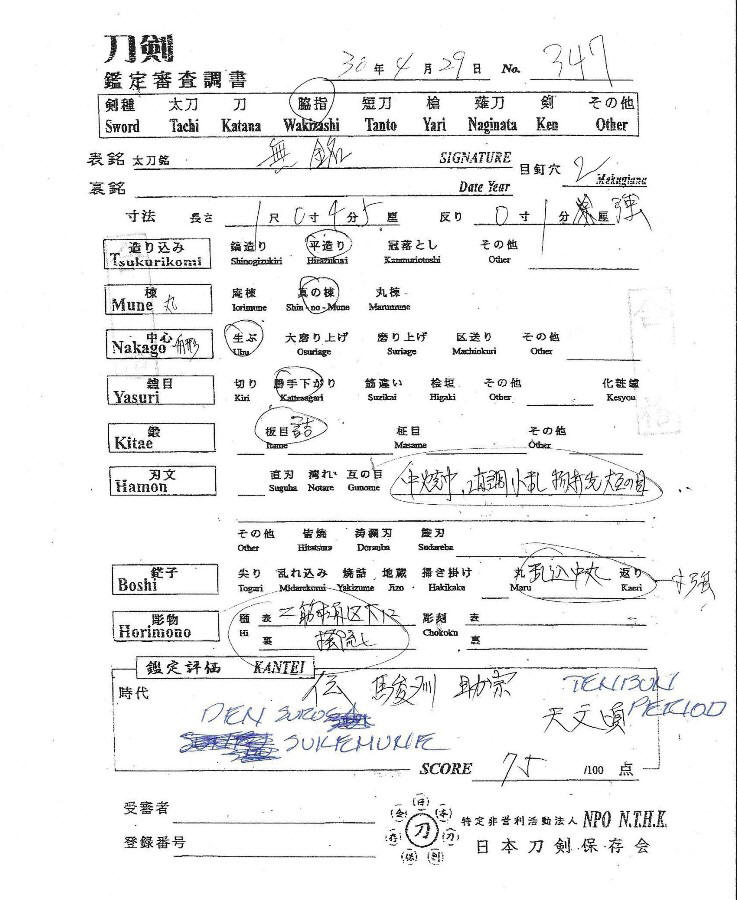 刀剣
鑑定審査調書 30年4月29日 No. 347
剣種 太刀 刀 脇指 短刀 槍 薙刀 剣 その他
Sword Tachi Katana Wakizashi Tanto Yari Naginata Ken Other
表銘 太刀銘 無銘 SIGNATURE 目釘穴 2 Mekugiana
裏銘 Date Year
寸法 長さ 1尺0寸4分5厘 反り 0寸1分 強
造り込み 鎬造り 平造り 冠落とし その他
Tsukurikomi Shinogizukiri Hirazukuri Kanmuriotoshi Other
棟 庵棟 真の棟 丸棟
Mune 丸 Iorimune Shin-no-Mune Marumune
中心 生ぶ 大磨り上げ 磨り上げ 区送り その他
Nakago Ubu Osuriage Suriage Machiokuri Other
鑢目 切り 勝手下がり 筋違い 桧垣 その他 化粧鑢
Yasuri Kiri Kattesagari Suzikai Higaki Other Kesyou
鍛 板目 詰 柾目 その他
Kitae Itame Masame Other
刃文 直刃 湾れ 互の目
Hamon Suguha Notare Gunome
その他 皆焼 涛瀾刃 簾刃
Other Hitatsura Doranba Sudareba
鋩子 尖り 乱れ込み 焼詰 地蔵 掃き掛け 丸 乱込中丸 返り
Boshi Togari Midarekomi Yakizume Jizo Hakikake Maru Kaeri
彫物 樋 表 彫刻 表
Horimono Hi 裏 Chokoku 裏
鑑定評価 KANTEI
時代 伝 駿州 助宗 TENBUN PERIOD
天文頃
DEN SUROGA
SUKEMUNE
SCORE 75 /100 点
受審者
登録番号
刀
特定非営利活動法人 NPO N.T.H.K.
日本刀剣保存会